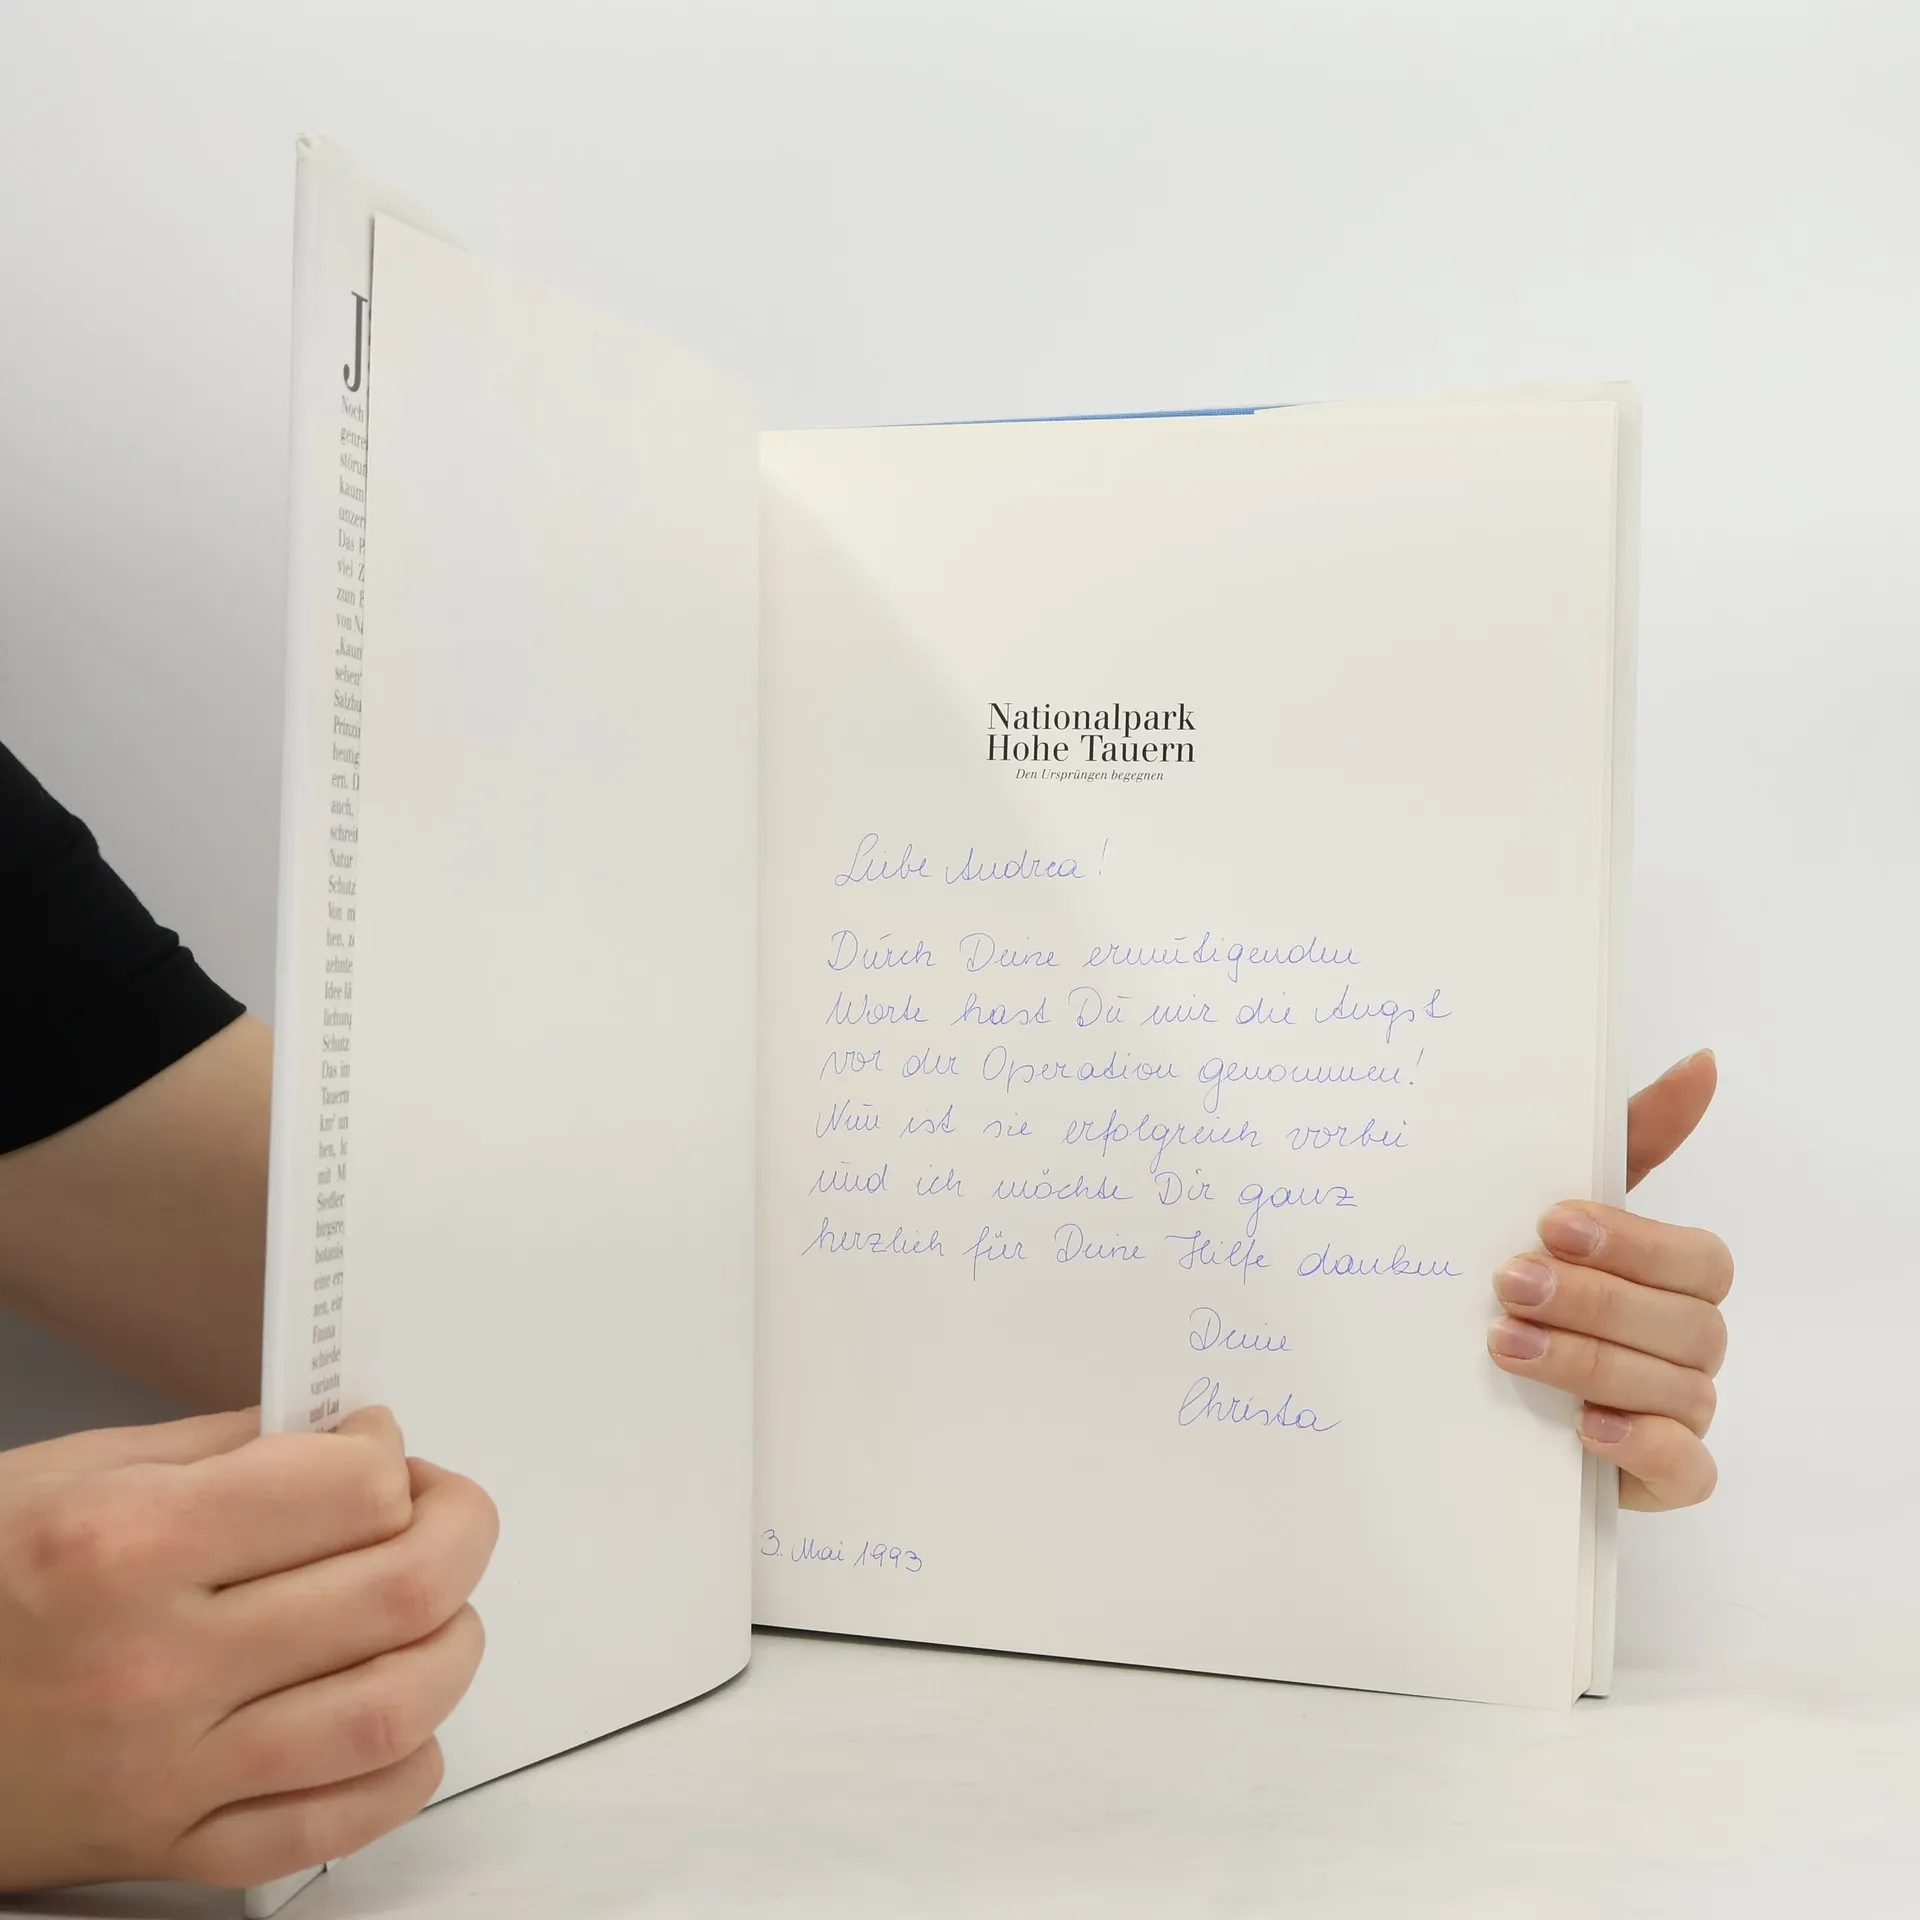 J
Noch
genre
störun
kaum
unzer
Das P
viel Z
zum P
von Na
„Kaum
sehen“
Salzbu
Prinzi
heutig
ern. D
auch,
schreit
Natur
Schutz
Von m
hen, z
zehnte
Idee lä
lichung
Schutz
Das im
Tauern
kre' un
ben, lo
mit M
Siedler
birgsre
botanis
eine er
nen, ein
Fauna
schiede
variante
und Lai
Nationalpark
Hohe Tauern
Den Ursprüngen begegnen
Liebe Andrea!
Durch Deine ermutigenden
Worte hast Du mir die Angst
vor der Operation genommen!
Nun ist sie erfolgreich vorbei
und ich möchte Dir ganz
herzlich für Deine Hilfe danken
Deine
Christa
3. Mai 1993